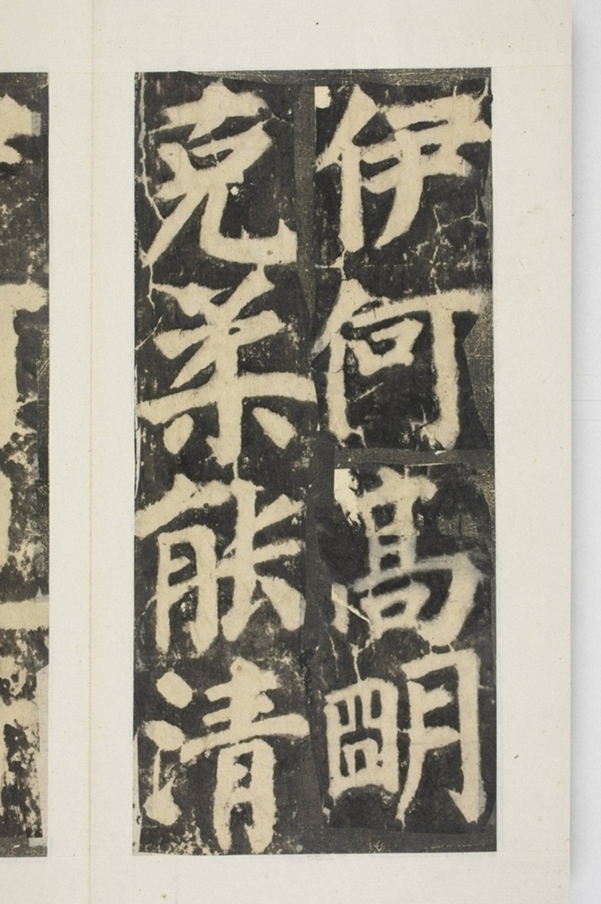 伊何高明
克柔能清